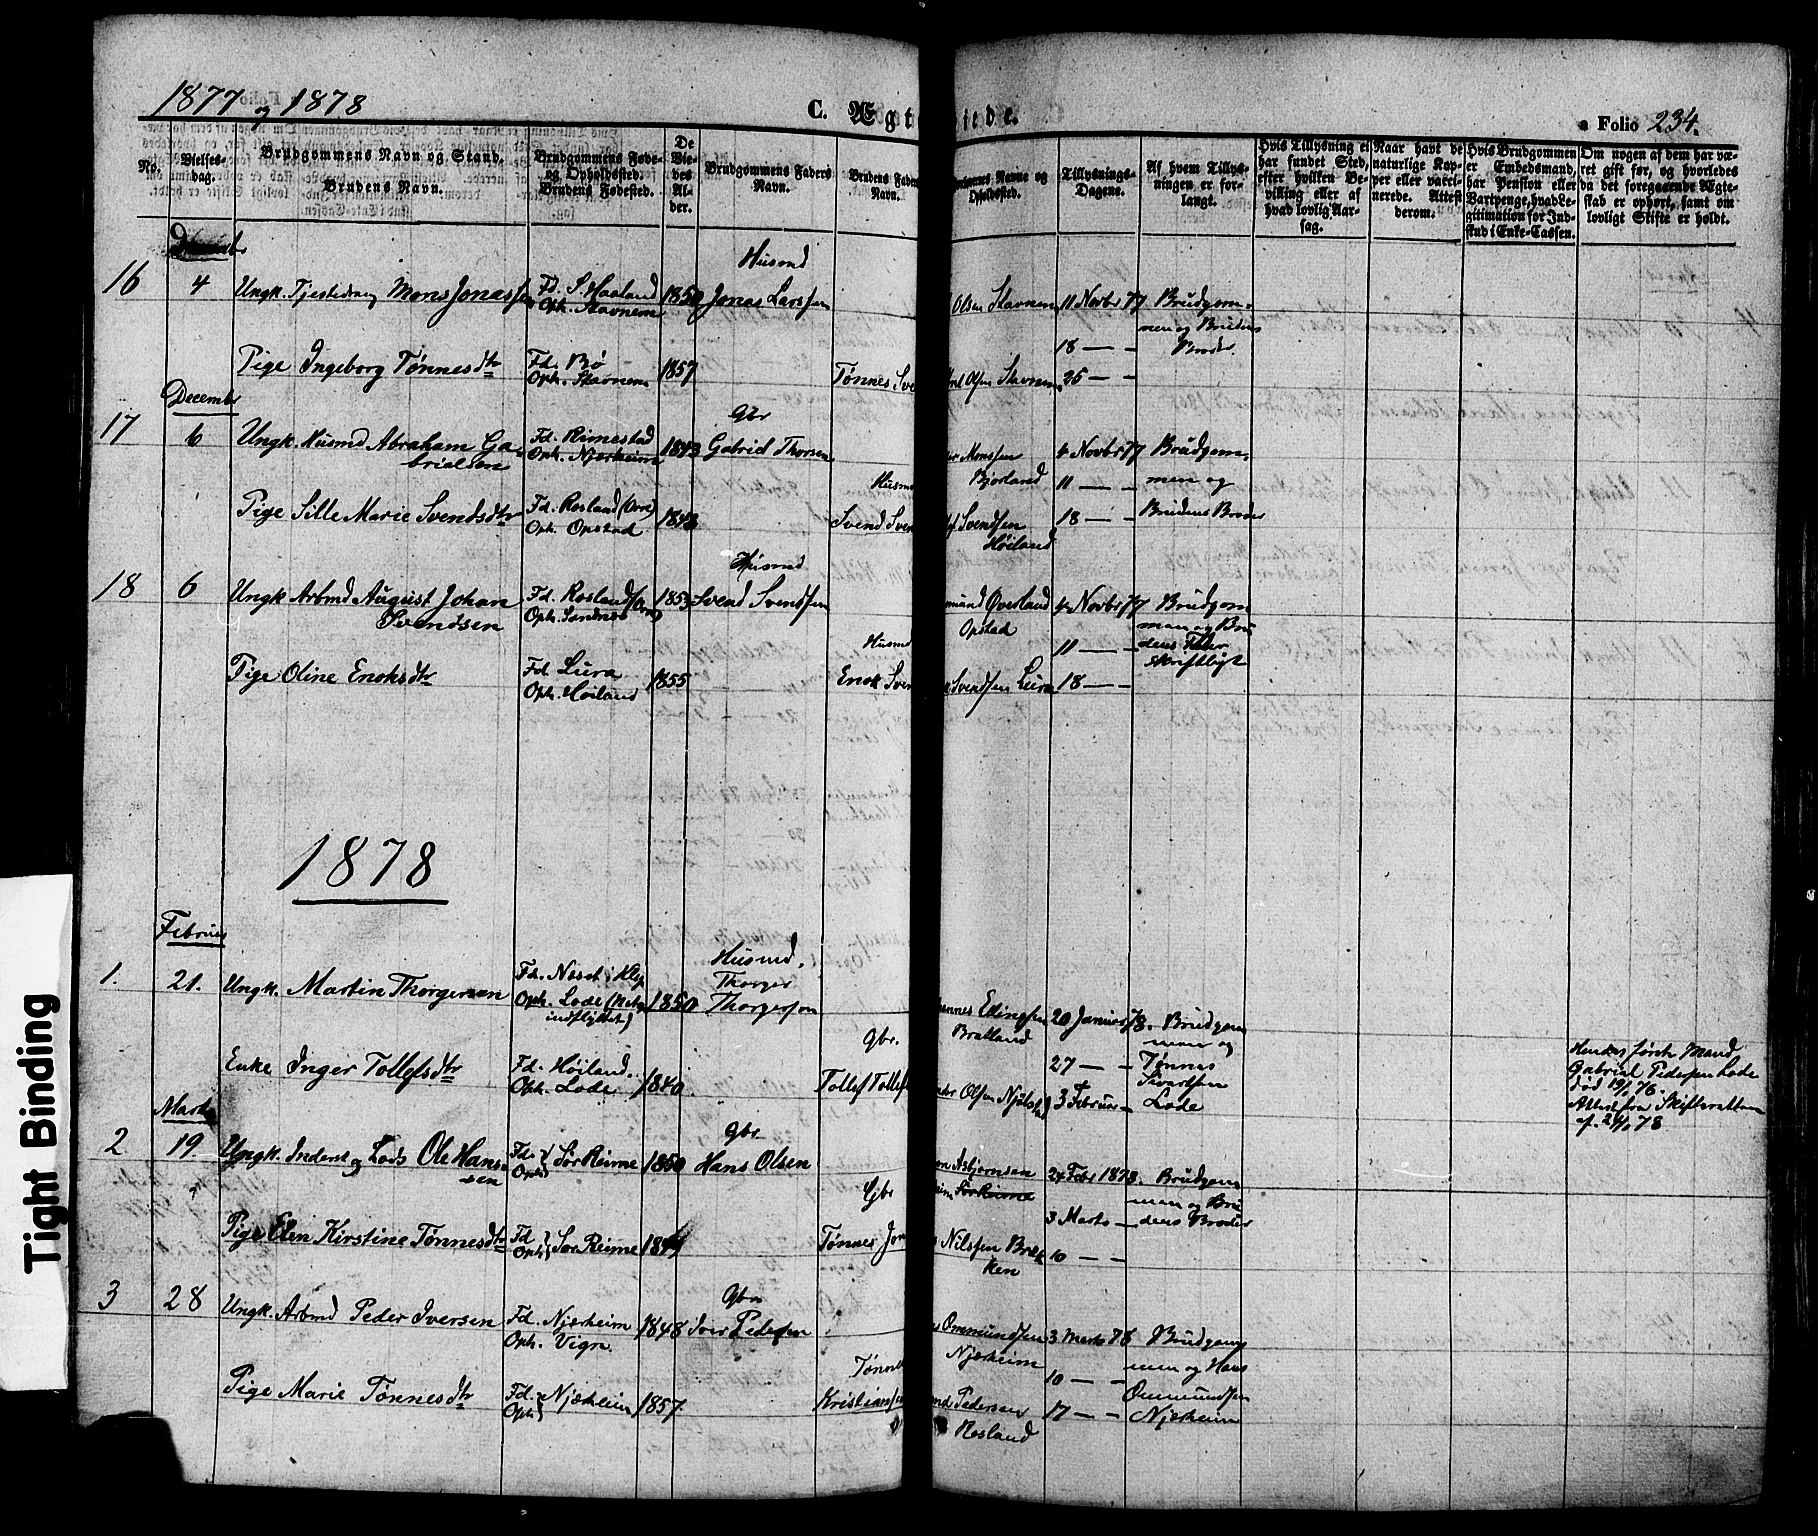 1877 og 1878
C. Ægt
iede.
a Folio 234.
No.
Vielses-
dag.
Brudgommens Navn og Stand.
Brudens Navn.
Brudgommens Føde-
og Opholdssted.
Brudens Fødested.
De
Vie-
des
Al-
der.
Brudgommens Faders
Navn.
Brudens Fader
Navn.
Tillysnings-
Dagene.
Af hvem Tillys-
ningen er for-
langt.
Hvis Tillysning ei
har fundet Sted,
efter hvilken Be-
villing eller af
hvad lovlig Aar-
sag.
Naar havt de
naturlige Kop-
per eller vacci-
nerede. Attest
derom.
Hvis Brudgommen
er Embedsmand,
har Pension eller
Vartpenge, hvad Le-
gitimation for Ind-
skud i Enke-Cassen.
Om nogen af dem har væ-
ret gift før, og hvorledes
da det foregaaende Ægte-
skab er ophørt, samt om
lovligt Skifte er holdt.
16
4
Ungk. Tjestedreng Mons Jonassen
Fd. S. Haaland
Oph. Stavnem
1850
Husmd
Jonas Larssen
Olsen Stavnem
11 Novbr 77
Brudgom-
men og Brudens
Broder.
18 — —
Pige Ingeborg Tønnesdtr
Fd. Bø
Oph. Stavnem
1857
Tønnes Sve
Olsen Stavnem
25 — —
December
17
6
Ungk. Husmd Abraham Ga-
brielsen
Fd. Rimestad
Oph. Njærheim
1843
Gbr
Gabriel Thorsen
Monssen
Bjorland
4 Novbr 77
Brudgom-
men og
Brudens Broder
11 — —
Pige Sille Marie Svendsdtr
Fd. Rosland (Orre)
Oph. Opstad
1848
Husmd
Svend Sven
Svendsen
Høiland
18 — —
18
6
Ungk Arbmd August Johan
Svendsen
Fd. Rosland (Orre)
Oph. Sandnes
1853
Husmd
Svend Svendsen
mund Øverland
Opstad
4 Novbr 77
Brudgom
men og Bru
dens Fader
skriftligt
11 — —
Pige Oline Enoksdtr
Fd Lura
Oph. Høiland
1855
Husmd
Enok Sven
Svendsen Lura
18 — —
1878
Februar
1.
21.
Ungk. Martin Thorgersen
Fd. Næset i Klep
Oph. Lode (Netop
indflyttet)
1850
Husmd.
Thorger
Thorgersen
nnes Edingsen
Bratland
20 Januar 78.
Brudgom
men og
Tønnes
Sivertsen
Lode
27 — —
Enke Inger Tollefsdtr
Fd. Høiland.
Oph. Lode.
1840.
Gbr.
Tollef Tollefs
der Olsen
3 Februar —
Hendes første Mand
Gabriel Pedersen Lode
død 19/1 76.
Attest fra Skifteretten
Marts
2
19
Ungk. Inderst og Lods Ole Han-
sen
Fd.
Oph. } Sør Reime
1850
Gbr.
Hans Olsen
on Asbjørnsen
Sør Reime
24 Febr 1878.
Brudgom
men og Bru
dens Broder
3 Marts —
Pige Elen Kirstine Tønnesdtr
Fd
Oph } Sør Reime
1849
Gbr
Tønnes Jon
Nilssen Bræk
ken
10 — —
3
28
Ungk. Arbmd Peder Iversen
Fd. Njærheim
Oph. Vigre.
1848
Gbr
Iver Pedersen
Ommundsen
Njærheim
3 Marts 78
Brudgom
men og Hans
Ommundsen
Njærheim
10 — —
Pige Marie Tønnesdtr
Fd.
Oph } Njærheim
1857
Tønnes
Kristiansen
nd Pedersen
Rosland
17 — —
Tight Binding